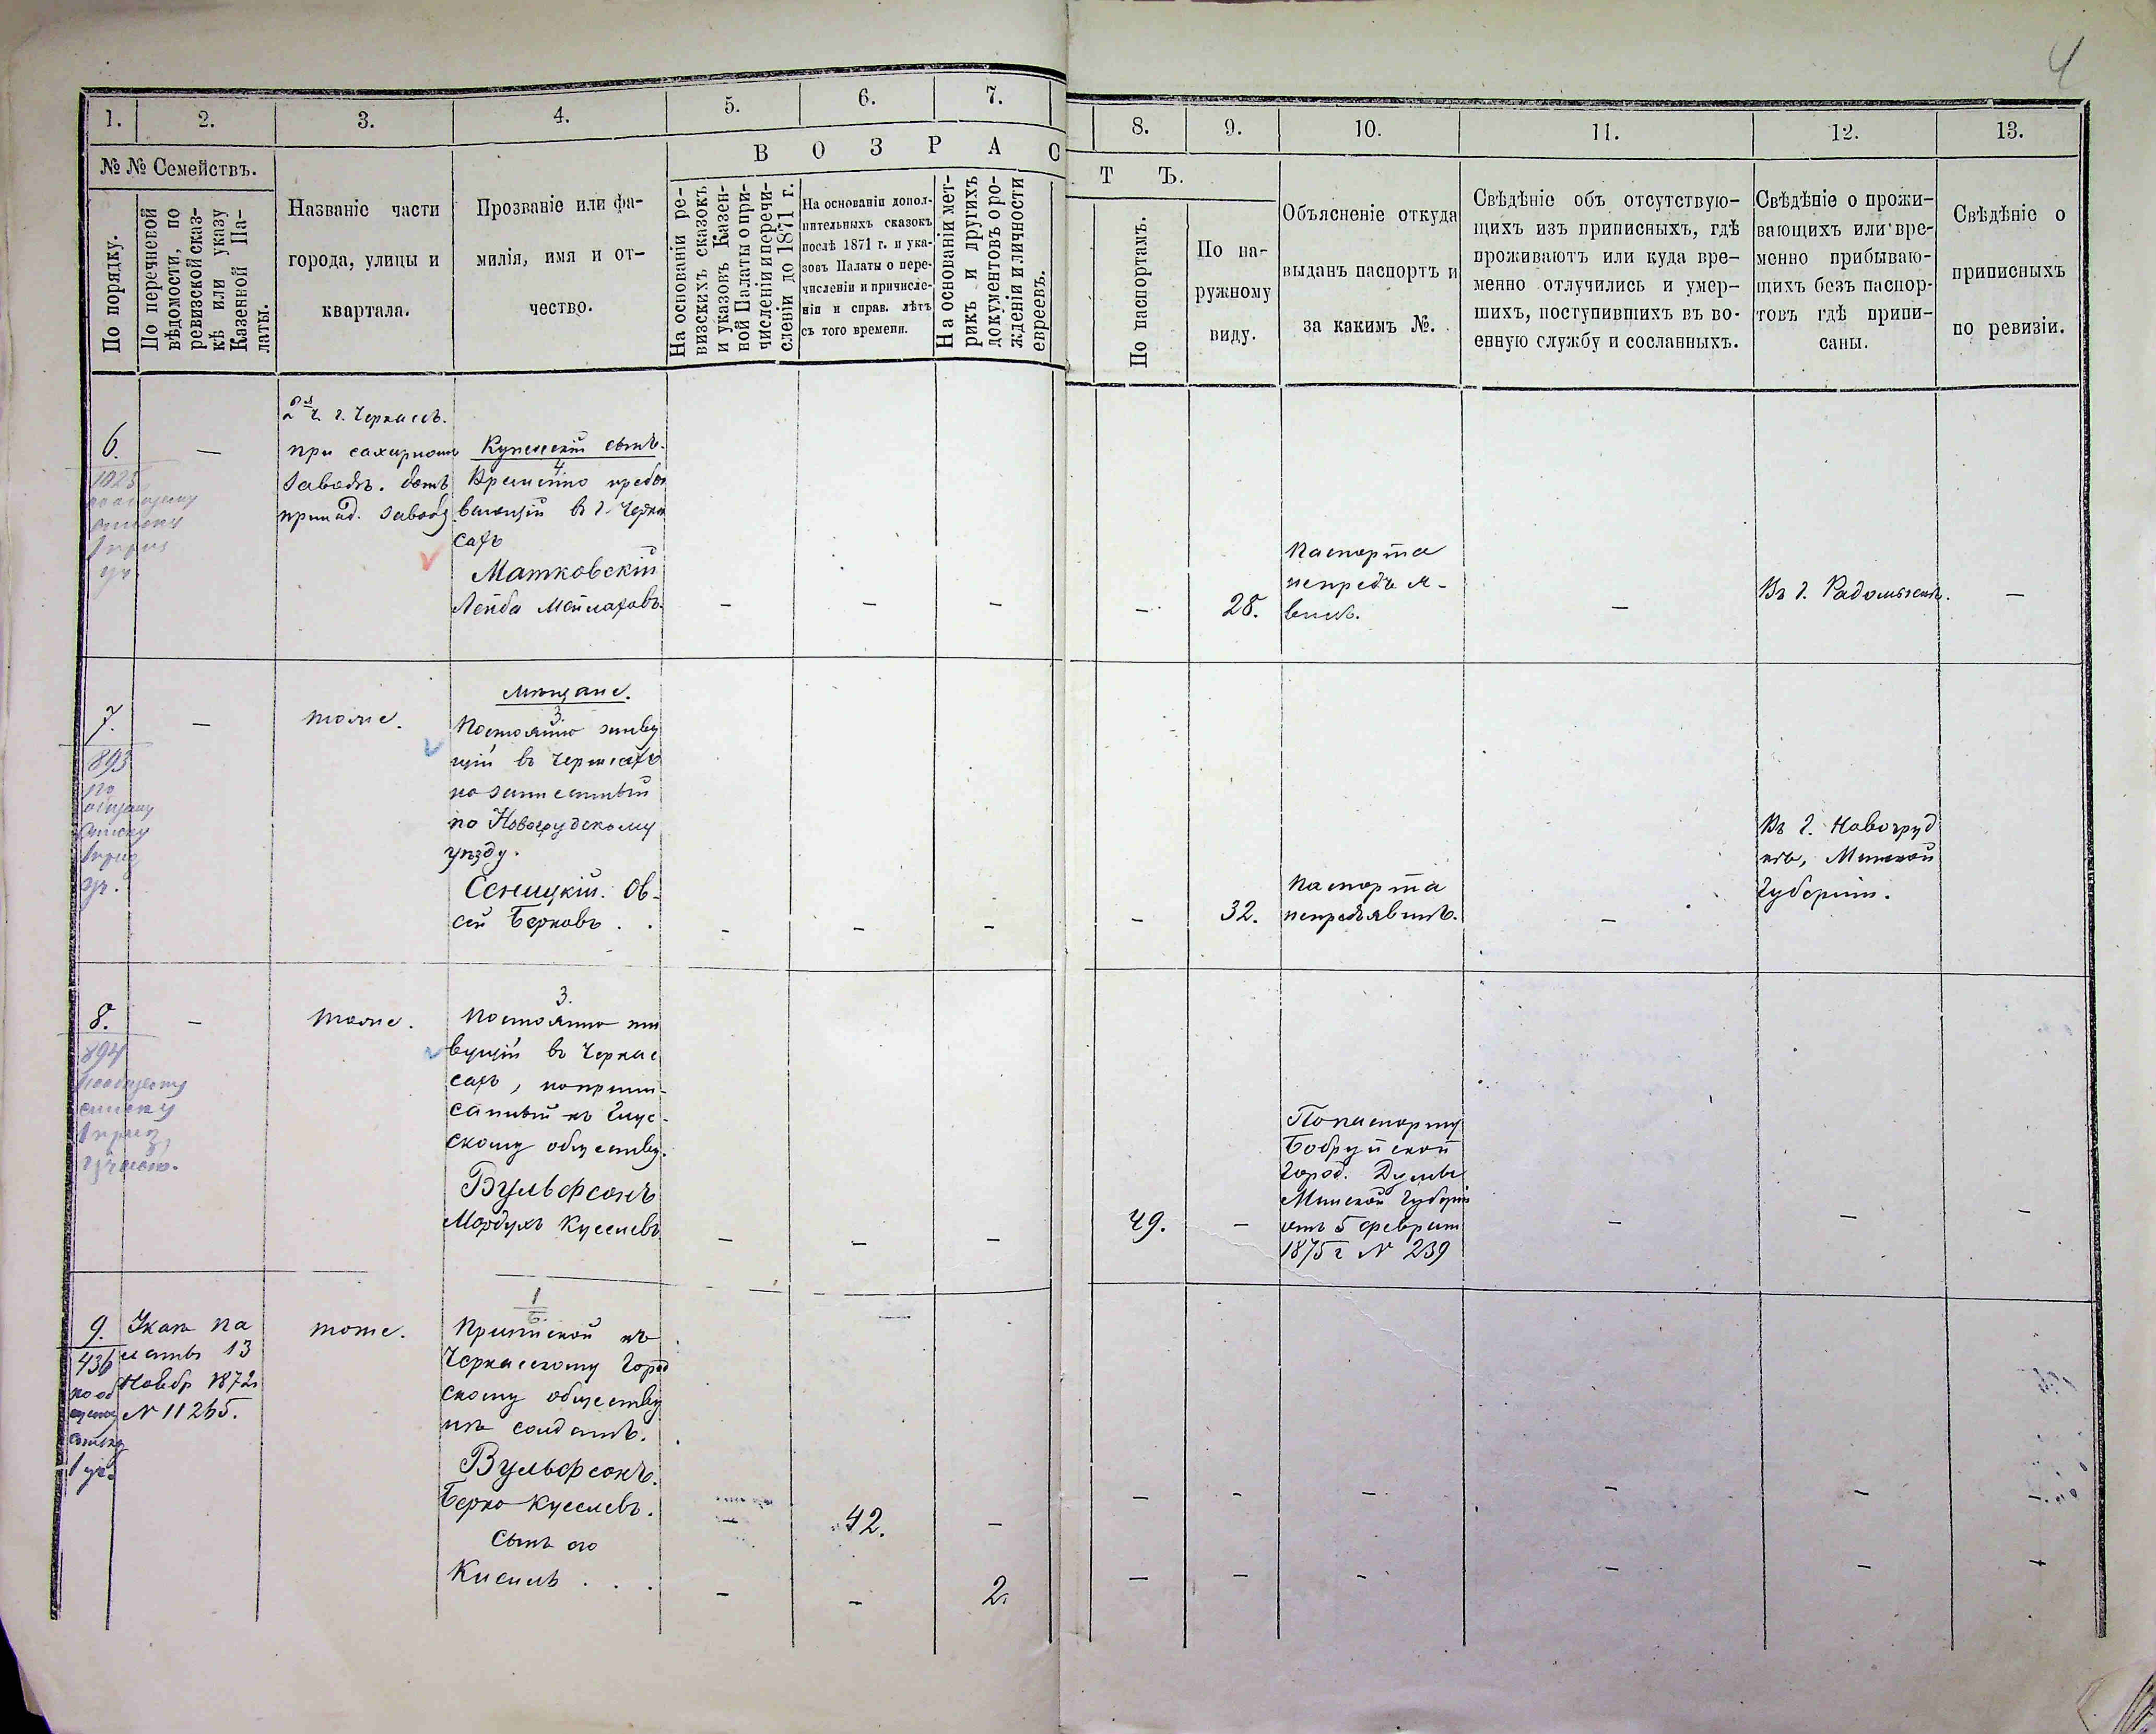 4
1. 2. 3. 4. 5. 6. 7. 8. 9. 10. 11. 12. 13.
№ № Семействъ.
По порядку.
По перечневой
вѣдомости, по
ревизской сказ-
кѣ или указу
Казенной Па-
латы.
Названіе части
города, улицы и
квартала.
Прозваніе или фа-
милія, имя и от-
чество.
В О З Р А С Т Ъ.
На основаніи ре-
визскихъ сказокъ
и указовъ Казен-
ной Палаты о при-
численіи и перечи-
сленіи до 1871 г.
На основаніи допол-
нительныхъ сказокъ
послѣ 1871 г. и ука-
зовъ Палаты о пере-
численіи и причисле-
ніи и справ. лѣтъ
съ того времени.
На основаніи мет-
рикъ и другихъ
документовъ о ро-
жденіи и личности
евреевъ.
По паспортамъ.
По на-
ружному
виду.
Объясненіе откуда
выданъ паспортъ и
за какимъ №.
Свѣдѣніе объ отсутствую-
щихъ изъ приписныхъ, гдѣ
проживаютъ или куда вре-
менно отлучились и умер-
шихъ, поступившихъ въ во-
енную службу и сосланныхъ.
Свѣдѣніе о прожи-
вающихъ или вре-
менно прибываю-
щихъ безъ паспор-
товъ гдѣ припи-
саны.
Свѣдѣніе о
приписныхъ
по ревизіи.
6.
1025
по общему
списку
—
2я ч. г. Черкассъ.
при сахарномъ
заводѣ. домъ
принад. заводу
Купеческій сынъ.
4.
Временно пребы
вающій въ г. Черка
сахъ
Матковскій
Лейба Мейлаховъ.
— — — —
28.
Паспорта
непредъя-
вилъ.
—
Въ г. Радомыслѣ.
—
7.
893
по
общему
списку
уч.
—
тоже.
Мѣщане.
3.
Постоянно живу
щій въ Черкасахъ
но записанный
по Новогрудскому
уѣзду.
Сеницкій. Ов-
сей Берковъ . .
— — — —
32.
Паспорта
непредъявилъ.
—
Въ г. Новогруд
кѣ, Минской
Губерніи.
8.
894
по общему
списку
участ.
—
тоже.
3.
Постоянно жи
вущій въ Черкас
сахъ, но припи-
санный къ Глус-
скому обществу.
Вульфсонъ
Мордухъ Кусселевъ
— — —
49.
—
По паспорту
Бобруйской
Город. Думы
Минской Губерніи
отъ 5 февраля
1875 г № 239
— — —
9.
436
по об
щему
списку
1 уч.
Указъ Па
латы 13
Ноября 1872
№ 11265.
тоже.
1
6.
Приписной къ
Черкасскому Город
скому обществу
изъ солдатъ.
Вульфсонъ.
Берко Кусселевъ.
— 42. — — — — — — —
Сынъ его
Кисиль . . .
— — 2. — — — — — —